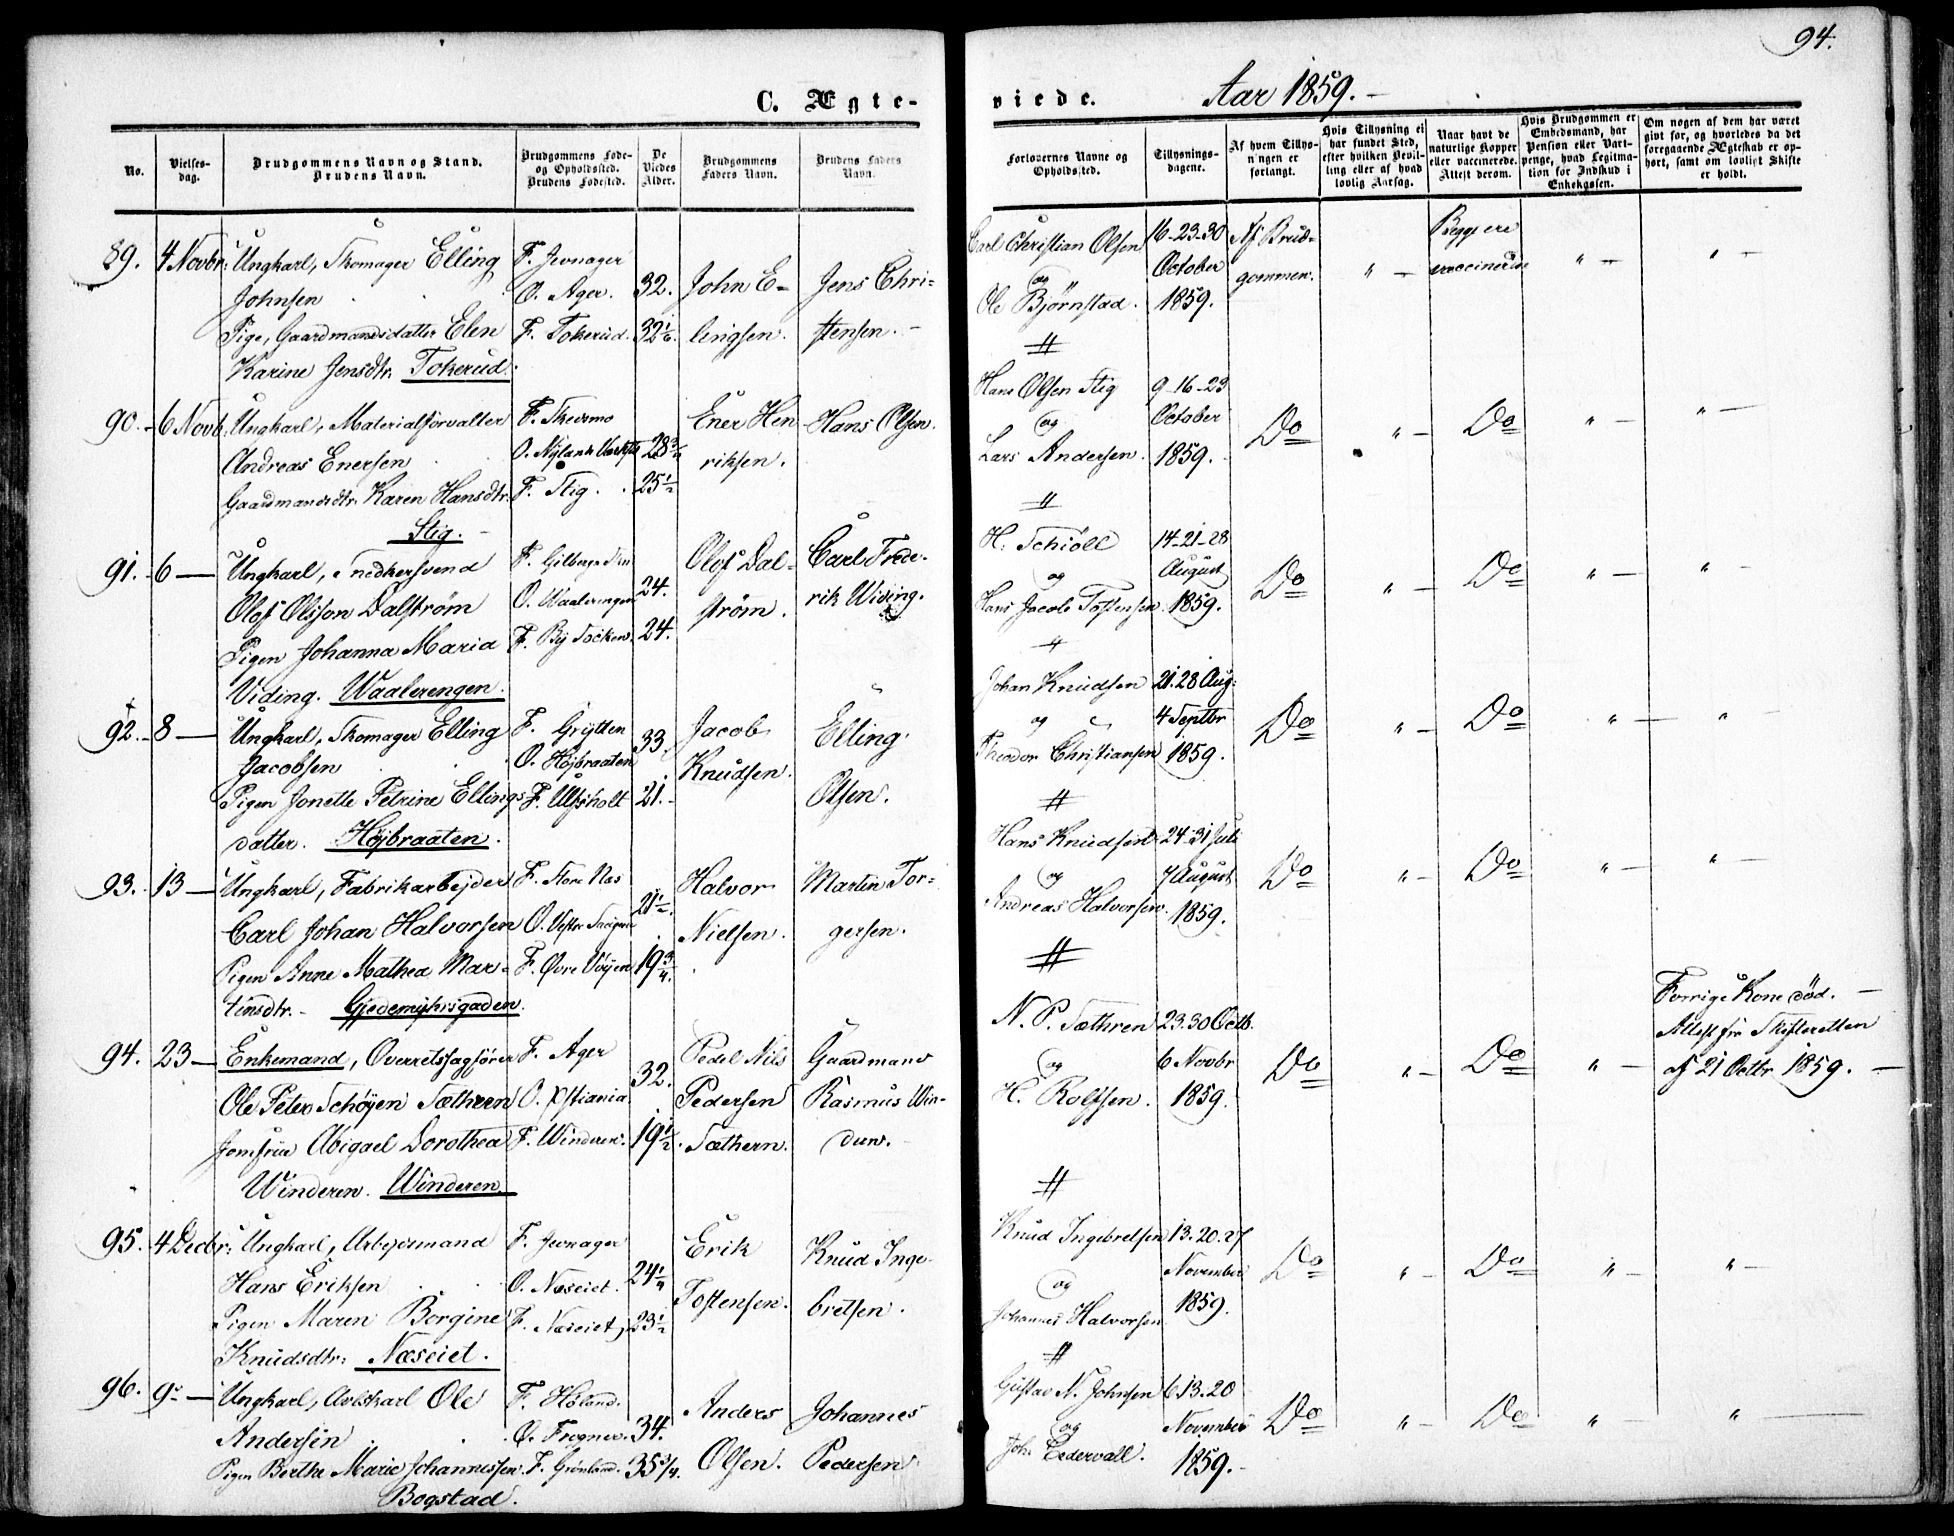 94.
C. Ægte-
viede.
Aar 1859.-
No.
Vielses-
dag.
Brudgommens Navn og Stand.
Brudens Navn.
Brudgommens Føde-
og Opholdssted.
Brudens Fødested.
De
Viedes
Alder.
Brudgommens
Faders Navn.
Brudens Faders
Navn.
Forlovernes Navne og
Opholdssted.
Tillysnings-
dagene.
Af hvem Tillys-
ningen er
forlangt.
Hvis Tillysning ei
har fundet Sted,
efter hvilken Bevil-
ling eller af hvad
lovlig Aarsag.
Naar havt de
naturlige Kopper
eller vaccinerede.
Attest derom.
Hvis Brudgommen er
Embedsmand, har
Pension eller Vart-
penge, hvad Legitima-
tion for Indskud i
Enkekassen.
Om nogen af dem har været
gift før, og hvorledes da det
foregaaende Ægteskab er op-
hørt, samt om lovligt Skifte
er holdt.
89. 4 Novbr: Ungkarl, Skomager Elling
Johnsen
Pige, Gaardmandsdatter Elen
Karine Jensdtr. Tokerud.
F. Jevnager
O. Ager. 32.
F. Tokerud. 32 1/6.
John E-
lingsen.
Jens Chri-
stensen. -
Carl Christian Olsen
og
Ole Bjørnstad.
16-23-30
October
1859.
Af Brud-
gommen.
" -
Begge ere
vaccinerede
" -
" -
90. - 6 Novb. Ungkarl, Materialforvalter
Andreas Enersen
Gaardmandsdtr. Karen Hansdtr.
Stig. -
F. Skedsmo
O. Nylands Værksted 28 3/4
F. Stig. 25 1/2
Ener Hen
riksen.
Hans Olsen.
Hans Olsen Stig
og
Lars Andersen.
9-16-23
October
1859.
Do
" -
Do
" -
" -
91. - 6 — Ungkarl, Snedkersvend
Olof Olsson Dalstrøm
Pigen Johanna Maria
Viding. Waalerengen.
F. Gilberga
O. Waalerengen 24.
F. By Socken. 24.
Olof Dal-
strøm.
Carl Frede-
rik Widing.
H. Schiöll
og
Hans Jacob Tostensen.
14-21-28
August
1859.
Do
" -
Do
" -
" -
92. - 8 — Ungkarl, Skomager Elling
Jacobsen
Pigen Jonette Petrine Ellings-
datter. Højbraaten.
F. Grytten
O. Højbraaten 33.
F. Ulfsholt 21. -
Jacob
Knudsen.
Elling
Olsen.
Johan Knudsen
og
Theodor Christiansen
21. 28 Aug:
4 Septbr
1859.
Do
" -
Do
" -
" -
93. 13 — Ungkarl, Fabrikarbejder
Carl Johan Halvorsen
Pigen Anne Mathea Mar-
tinsdtr. - Gjedemyhrsgaden.
F. Store Næs
O. Vestre 21 1/2.
F. Øvre Vøyen 19 3/4.
Halvor
Nielsen.
Martin Tor-
gersen.
Hans Knudsen
og
Andreas Halvorsen.
24-31 Juli
7 August
1859.
Do
" -
Do
" -
" -
94. 23 — Enkemand, Overretssagfører
Ole Peter Schøyen Sæthren
Jomfrue Abigael Dorothea
Winderen. Winderen.
F. Ager
O. Xstiania 32.
F. Winderen. 19 1/2.
Pedel Nils
Pedersen
Sæthern.
Gaardmand
Rasmus Win-
dern.
N. P. Sæthren
og
H. Rolfsen.
23. 30 Octb.
6 Novbr
1859.
Do
" -
Do
" -
Forrige Kone død. -
Attest fra Skifteretten
af 21 Octbr 1859. -
95. 4 Decbr: Ungkarl, Arbejdsmand
Hans Eriksen
Pigen Maren Borgine
Knudsdtr: Næseiet.
F. Jevnager
O. Næseiet. 24 1/4
F. Næseiet, 23 1/2
Erik
Tostensen.
Knud Inge-
bretsen.
Knud Ingebretsen
og
Johannes Halvorsen
13. 20. 27
November
1859.
Do
" -
Do
" -
" -
96. 9 — Ungkarl, Avlskarl Ole
Andersen
Pigen Berthe Marie Johannessen
Bogstad.
F. Høland.
O. Frogner. 34.
F. Grønland. 35 3/4.
Anders
Olsen.
Johannes
Pedersen
Gustav N. Johnsen
og
Joh. Cedervall.
6. 13. 20
November
1859. -
Do
" -
Do
"
" -